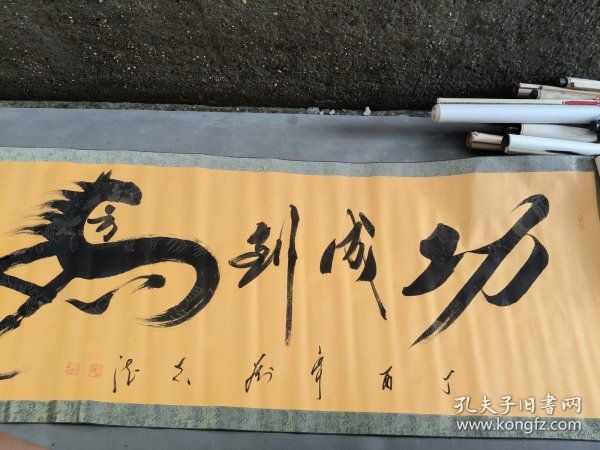 馬到成功
丁酉年
孔夫子旧书网
www.kongfz.com